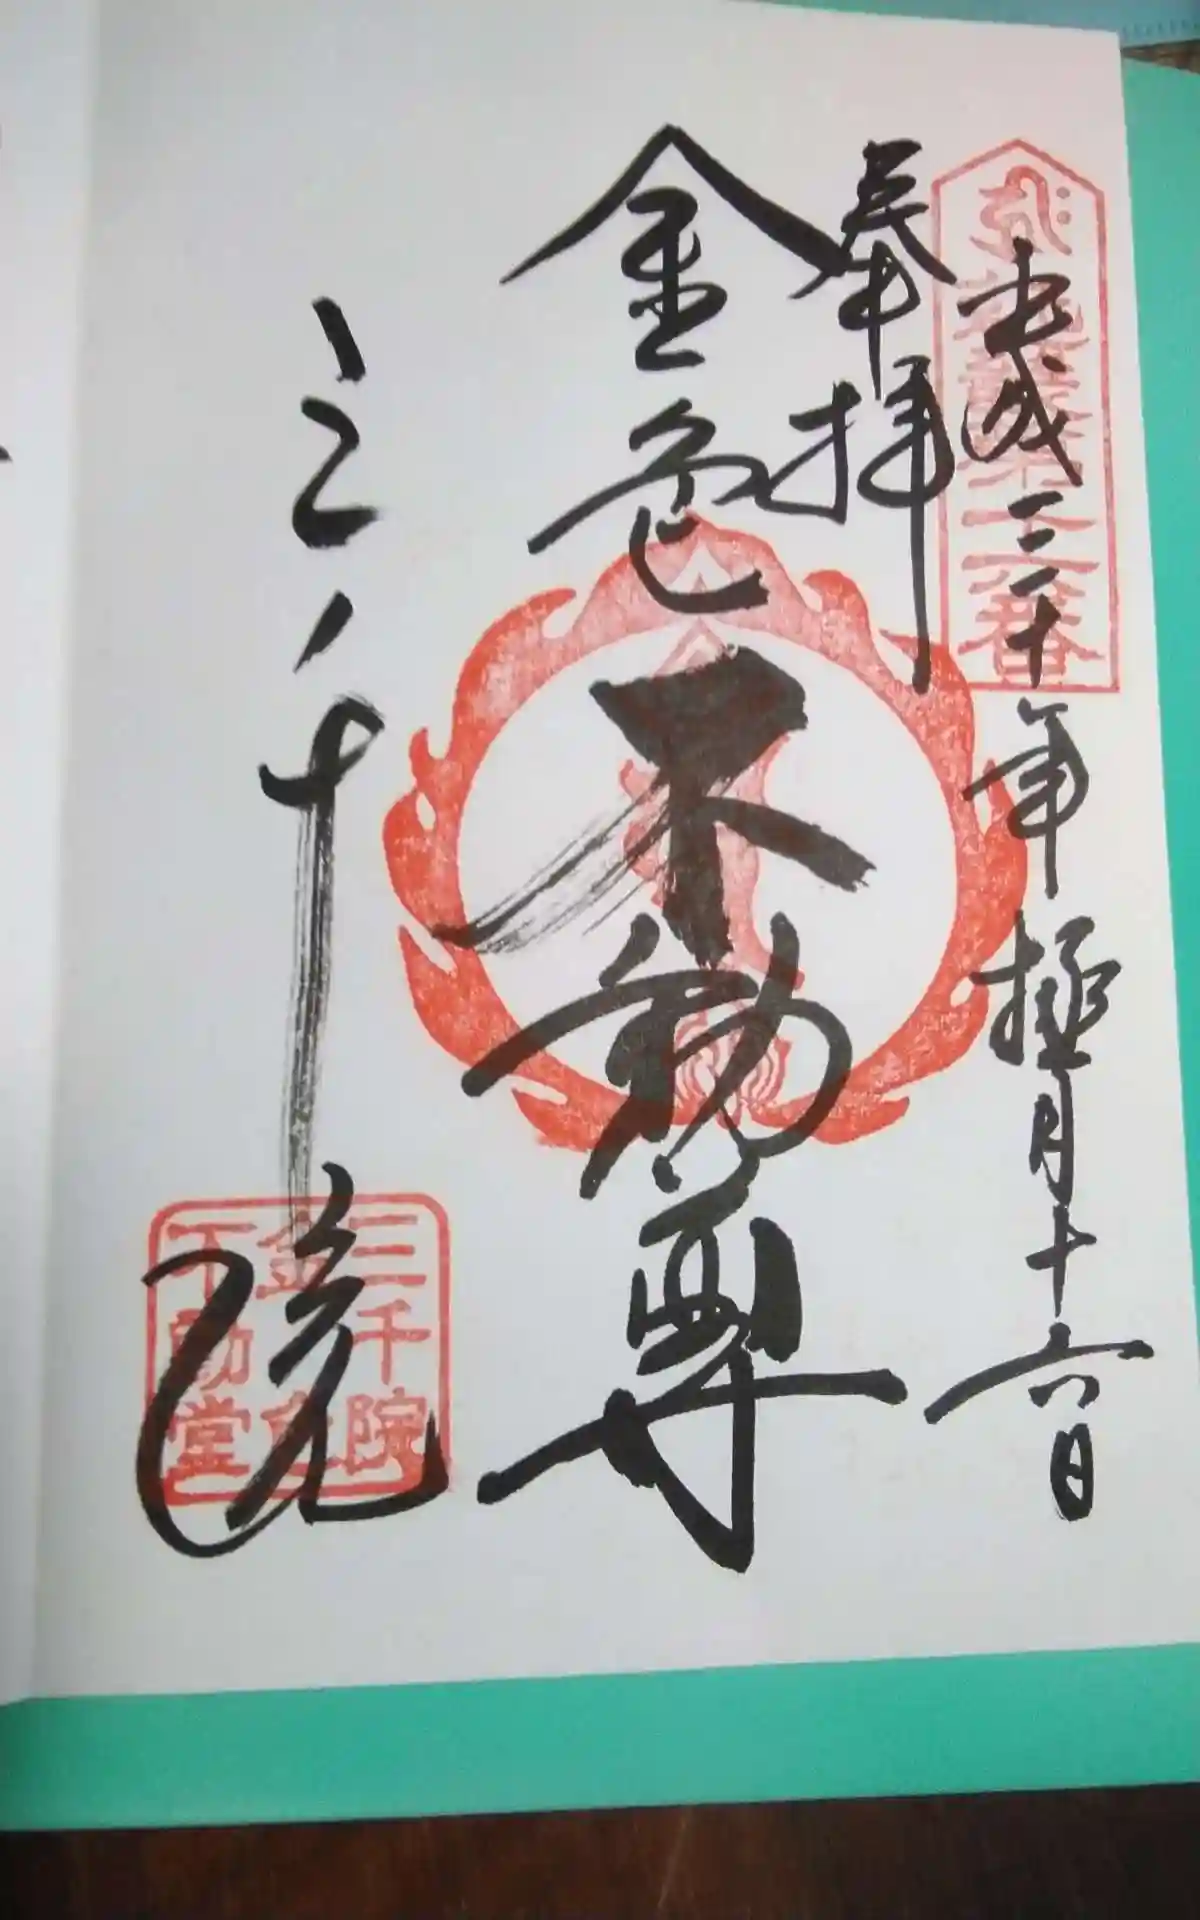 平成三十年極月十六日
奉拝
金色不動尊
三千院
三千院
金色
不動堂